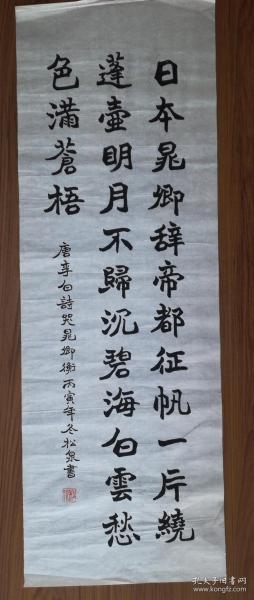 日本晁卿辞帝都征帆一片繞
蓬壺明月不歸沉碧海白雲愁
色滿蒼梧
唐李白詩哭晁卿衡丙寅年冬松泉書
孔夫子旧书网
www.kongfz.com